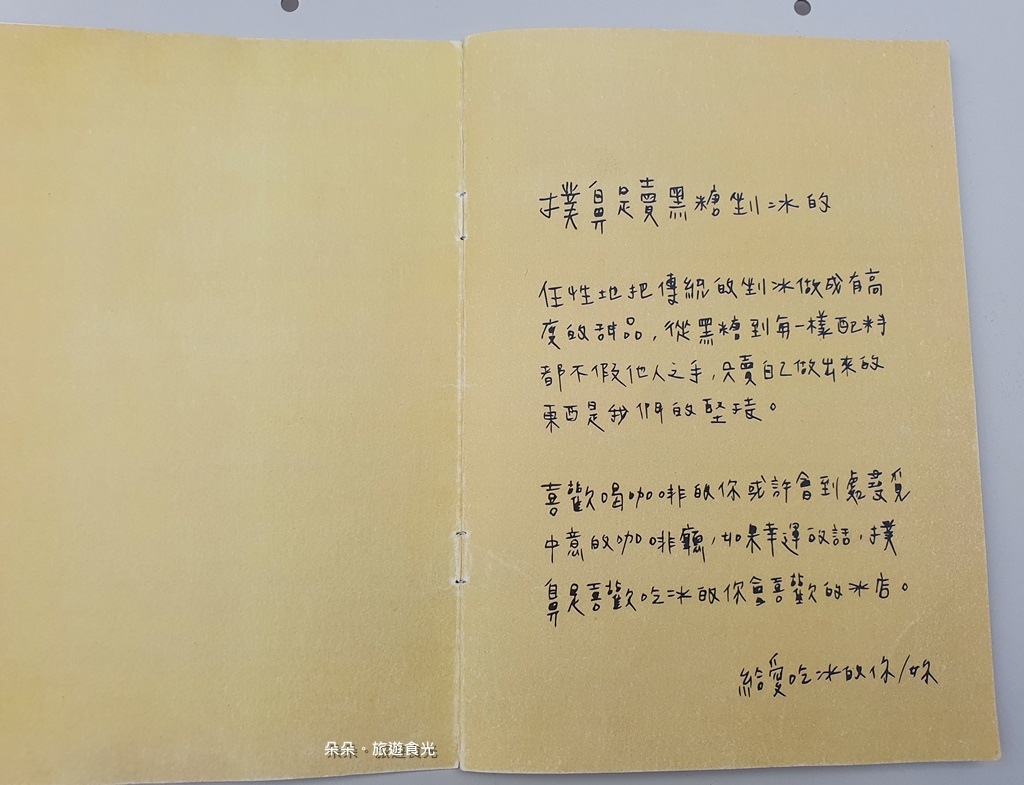 撲鼻是賣黑糖剉冰的
任性地把傳統的剉冰做成有高
度的甜品，從黑糖到每一樣配料
都不假他人之手，只賣自己做出來的
東西是我們的堅持。
喜歡喝咖啡的你或許會到處尋覓
中意的咖啡廳，如果幸運的話，撲
鼻是喜歡吃冰的你會喜歡的冰店。
給愛吃冰的你/妳
朵朵。旅遊食光